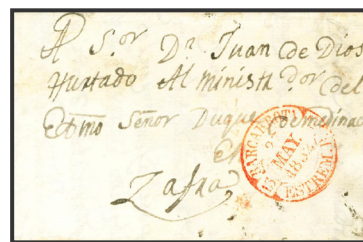 A S.or D.n Juan de Dios
Hurtado Al ministr.dor del
Exmo Señor Duque de medinac
En
Zafra
BARCARROTA
MAY.
ESTREM.